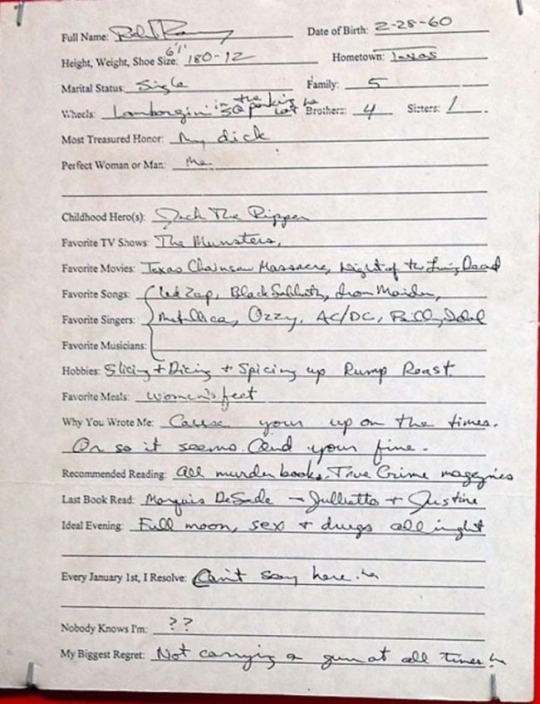 Full Name: Date of Birth: 2-28-60
Height, Weight, Shoe Size: 6'1" 180-12 Hometown: Texas
Marital Status: Single Family: 5
Wheels: in the parking lot ha Brothers: 4 Sisters: 1
Most Treasured Honor: My dick
Perfect Woman or Man: Me
Childhood Hero(s): Jack The Ripper
Favorite TV Shows: The Munsters,
Favorite Movies: Texas Chainsaw Massacre, Night of the Living Dead
Favorite Songs: Led Zap, Black Sabbath, Iron Maiden,
Favorite Singers: Metallica, Ozzy, AC/DC, Billy Idol
Favorite Musicians:
Hobbies: Slicing + Dicing + Spicing up Rump Roast
Favorite Meals: women's feet
Why You Wrote Me: Cause your up on the times.
Or so it seems. And your fine.
Recommended Reading: All murder books. True Crime magazines
Last Book Read: Marquis DeSade - Julliette + Justine
Ideal Evening: Full moon, sex + drugs all night
Every January 1st, I Resolve: Can't say here. ha
Nobody Knows I'm: ??
My Biggest Regret: Not carrying a gun at all times! ha